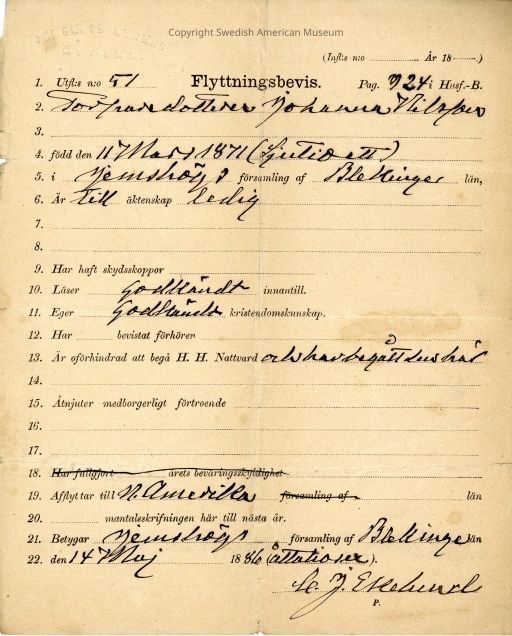 Copyright Swedish American Museum
(Infl:s n:o År 18 .)
1. Utfl:s n:o 51 Flyttningsbevis. Pag. 924 i Husf.-B.
2. Torpare dottren Johanna Nilsson
3.
4. född den 11 Mars 1871 (Sjutio ett)
5. i Jemshögs församling af Blekinge län,
6. Är till äktenskap ledig
7.
8.
9. Har haft skyddskoppor
10. Läser godkändt innantill.
11. Eger godkändt kristendomskunskap.
12. Har bevistat förhören
13. Är oförhindrad att begå H. H. Nattvard och har begått
14.
15. Åtnjuter medborgerligt förtroende
16.
17.
18. Har fullgjort årets beväringsskyldighet
19. Afflyttar till N. Amerika församling af län
20. mantalsskrifningen här till nästa år.
21. Betygar Jemshögs församling af Blekinge län
22. den 14 Maj 1886 (åttatiosex).
P.